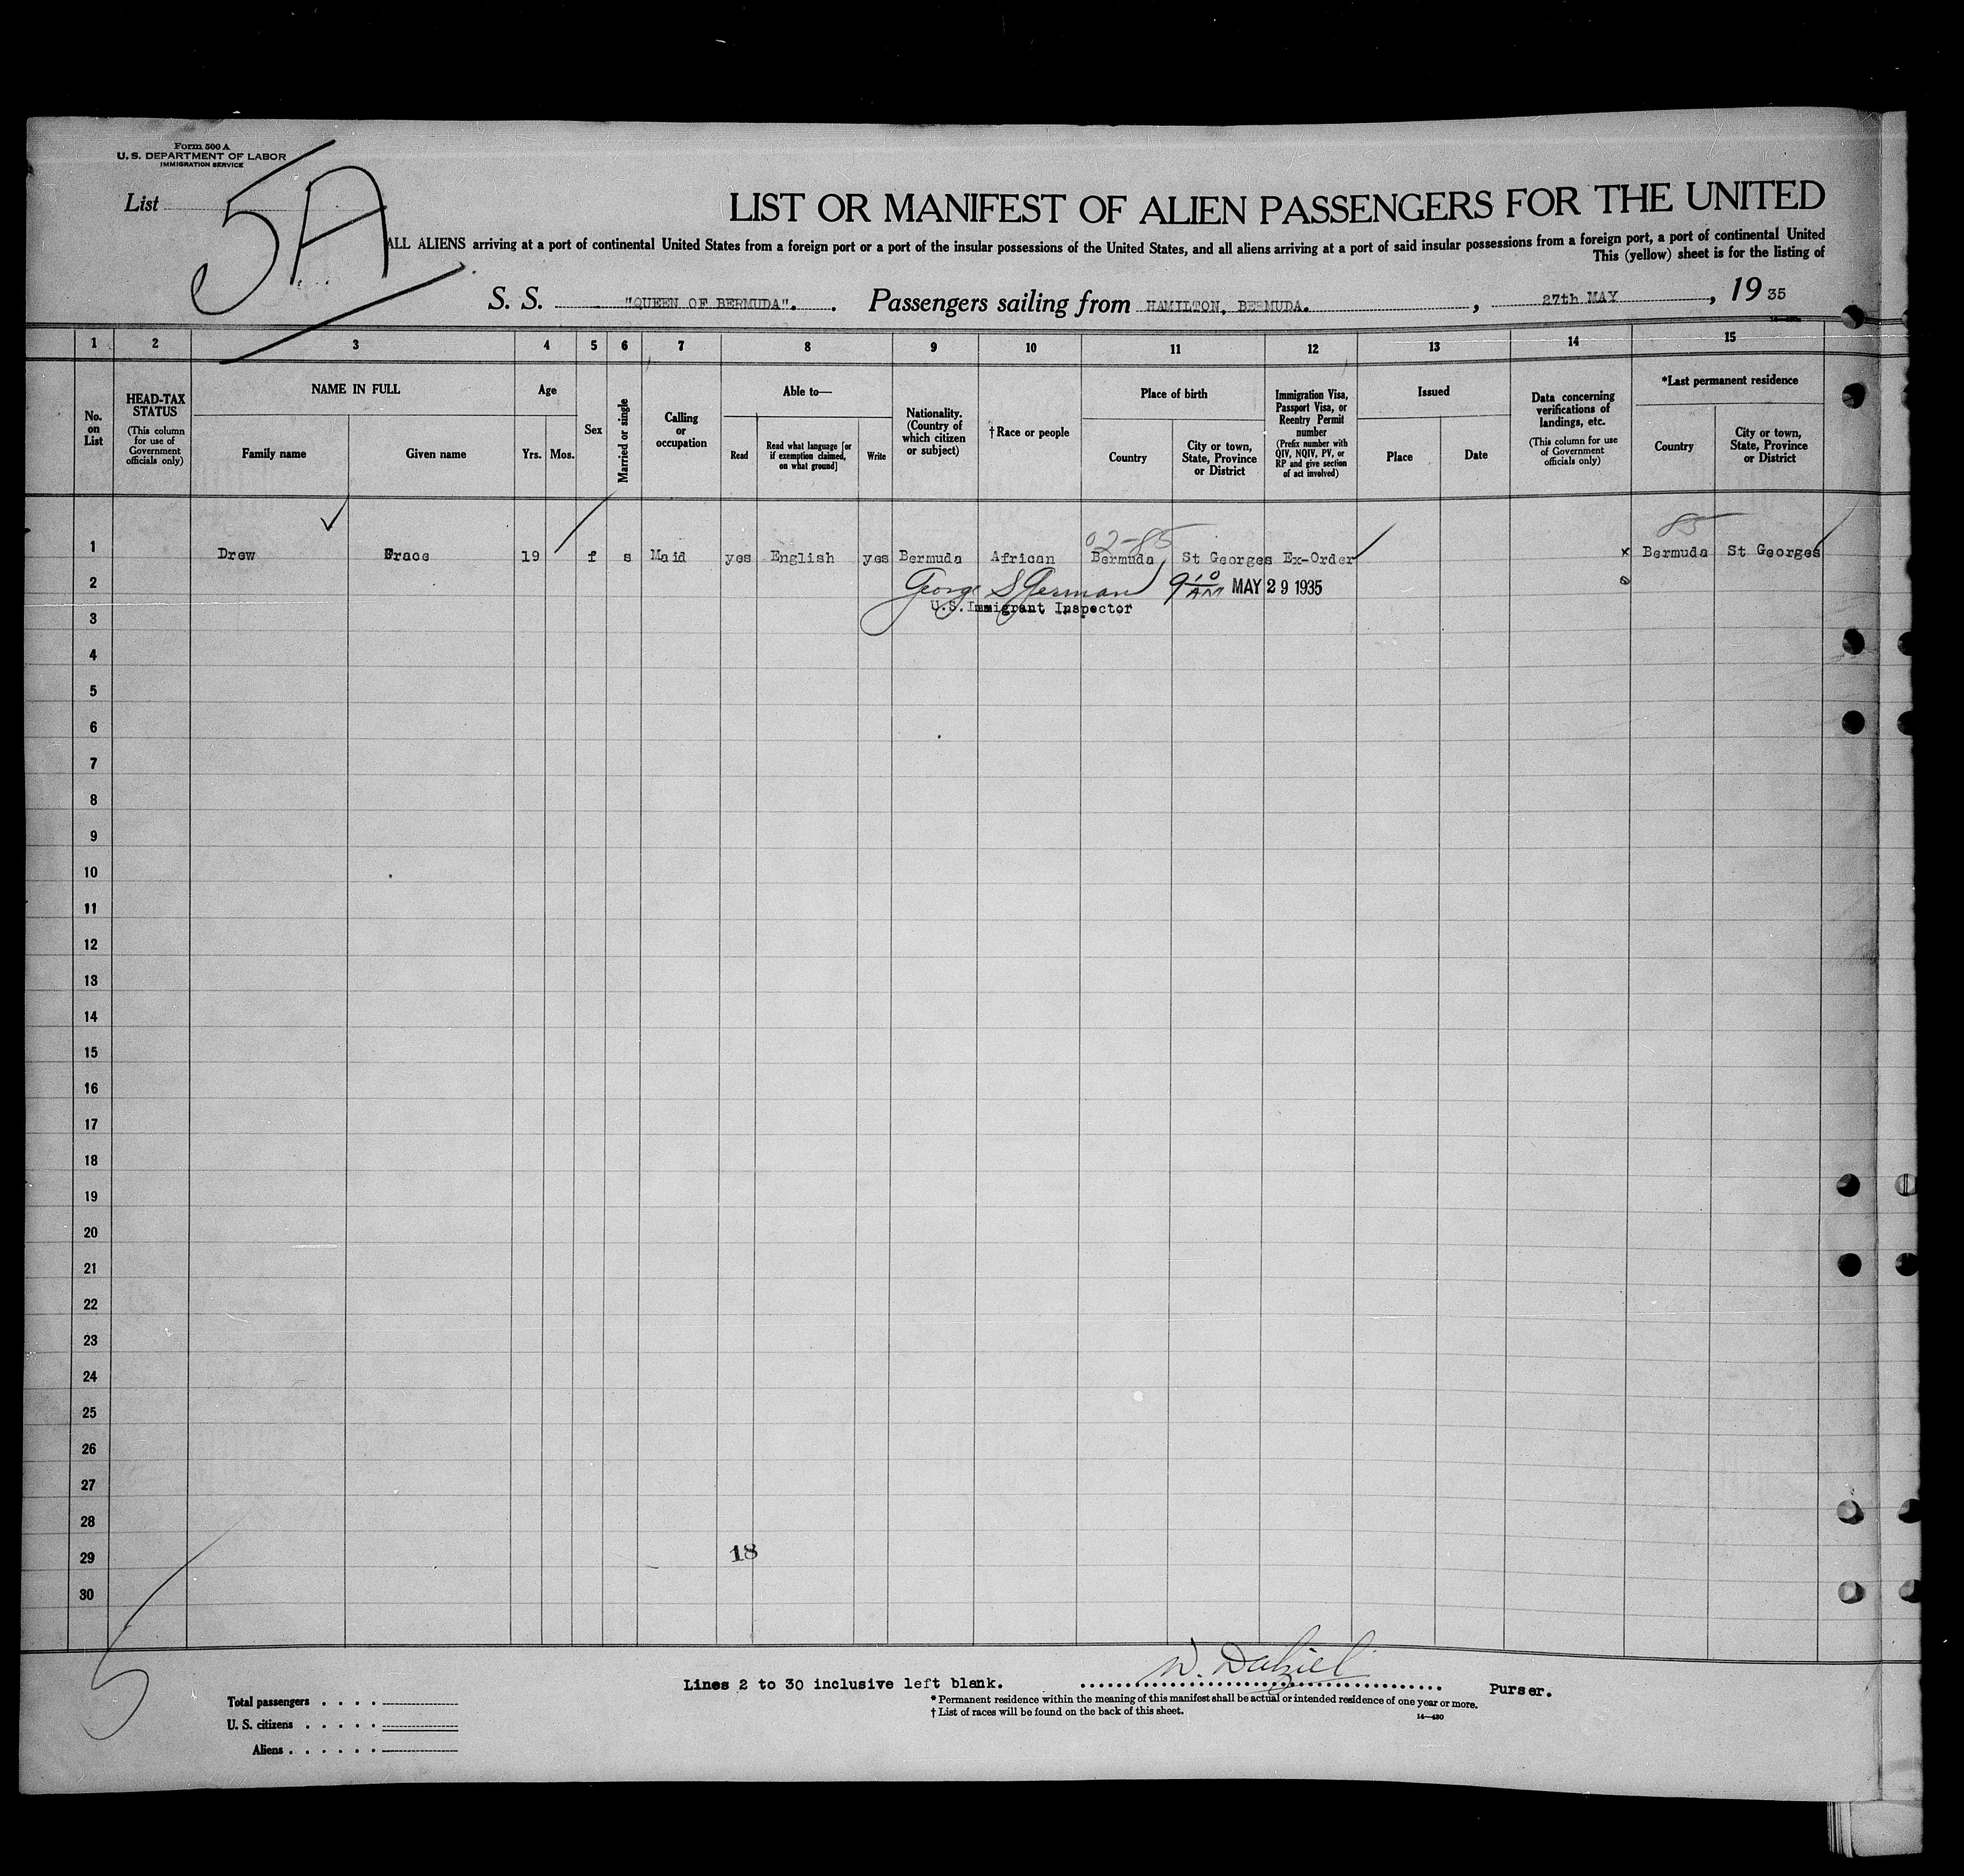 Form 500 A
U. S. DEPARTMENT OF LABOR
IMMIGRATION SERVICE
List 5A
LIST OR MANIFEST OF ALIEN PASSENGERS FOR THE UNITED
ALL ALIENS arriving at a port of continental United States from a foreign port or a port of the insular possessions of the United States, and all aliens arriving at a port of said insular possessions from a foreign port, a port of continental United
This (yellow) sheet is for the listing of
S. S. "QUEEN OF BERMUDA". Passengers sailing from HAMILTON, BERMUDA. , 27th MAY , 19 35
1 2 3 4 5 6 7 8 9 10 11 12 13 14 15
No. on List
HEAD-TAX STATUS
(This column for use of Government officials only)
NAME IN FULL
Family name
Given name
Age
Yrs.
Mos.
Sex
Married or single
Calling or occupation
Able to—
Read
Read what language [or if exemption claimed, on what ground]
Write
Nationality. (Country of which citizen or subject)
†Race or people
Place of birth
Country
City or town, State, Province or District
Immigration Visa, Passport Visa, or Reentry Permit number
(Prefix number with QIV, NQIV, PV, or RP and give section of act involved)
Issued
Place
Date
Data concerning verifications of landings, etc.
(This column for use of Government officials only)
*Last permanent residence
Country
City or town, State, Province or District
02-85
85
1 Drew Grace 19 f s Maid yes English yes Bermuda African Bermuda St Georges Ex-Order x Bermuda St Georges
2 George S German 9 10 AM MAY 29 1935
U.S.Immigrant Inspector
3
4
5
6
7
8
9
10
11
12
13
14
15
16
17
18
19
20
21
22
23
24
25
26
27
28
29 18
30
5
Lines 2 to 30 inclusive left blank. W. Dalziel Purser.
* Permanent residence within the meaning of this manifest shall be actual or intended residence of one year or more.
† List of races will be found on the back of this sheet.
14—480
Total passengers . . . .
U. S. citizens . . . . .
Aliens . . . . . .